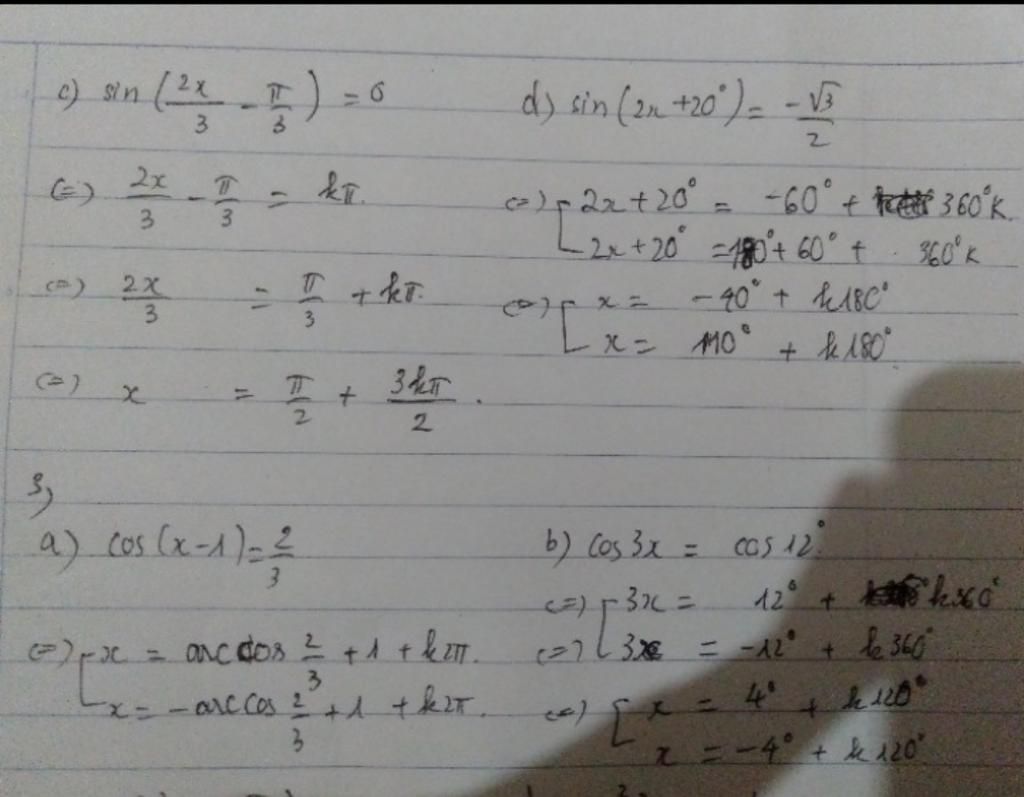 c) sin(2x/3 - π/3) = 0
(=) 2x/3 - π/3 = kπ.
(=) 2x/3 = π/3 + kπ.
(=) x = π/2 + 3kπ/2 .
d) sin(2x+20°) = -√3/2
(=) [ 2x+20° = -60° + 360°K.
2x+20° = 180°+60° + . 360°K
(=) [ x = -40° + k180°
x = 110° + k180°.
3,
a) cos(x-1) = 2/3
(=) [ x = arccos 2/3 + 1 + k2π.
x = -arccos 2/3 + 1 + k2π.
b) cos3x = cos12°.
(=) [ 3x = 12° + k360°
(=) 3x = -12° + k360°
(=) [ x = 4° + k120°
x = -4° + k120°